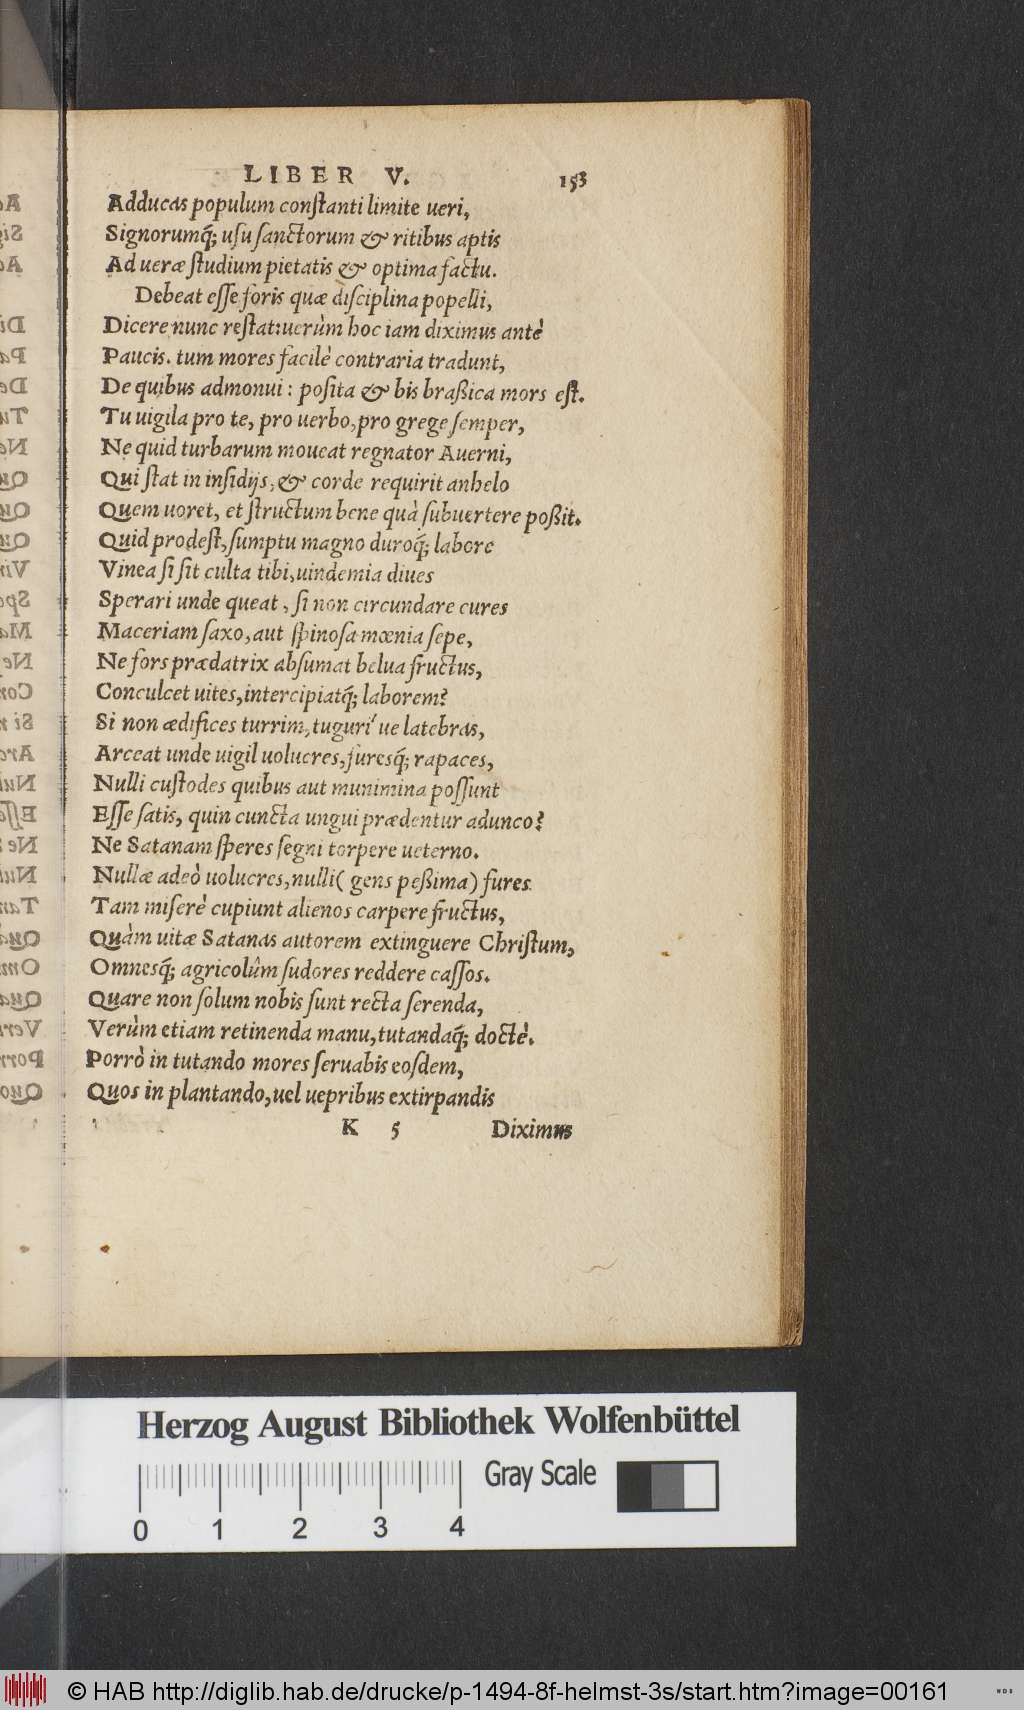 LIBER V. 153
Adducas populum conſtanti limite ueri,
Signorumq́; uſu ſanctorum & ritibus aptis
Ad ueræ ſtudium pietatis & optima factu.
Debeat eſſe foris quæ diſciplina popelli,
Dicere nunc reſtat: uerùm hoc iam diximus antè
Paucis. tum mores facilè contraria tradunt,
De quibus admonui: poſita & bis braßica mors eſt.
Tu uigila pro te, pro uerbo, pro grege ſemper,
Ne quid turbarum moueat regnator Auerni,
Qui ſtat in inſidijs, & corde requirit anhelo
Quem uoret, et ſtructum bene quà ſubuertere poßit.
Quid prodeſt, ſumptu magno duroq́; labore
Vinea ſi ſit culta tibi, uindemia diues
Sperari unde queat, ſi non circundare cures
Maceriam ſaxo, aut ſpinoſa mœnia ſepe,
Ne fors prædatrix abſumat belua fructus,
Conculcet uites, intercipiatq́; laborem?
Si non ædifices turrim, tuguri' ue latebras,
Arceat unde uigil uolucres, furesq́; rapaces,
Nulli cuſtodes quibus aut munimina poſſunt
Eſſe ſatis, quin cuncta ungui prædentur adunco?
Ne Satanam ſperes ſegni torpere ueterno.
Nullæ adeò uolucres, nulli (gens peßima) fures
Tam miſerè cupiunt alienos carpere fructus,
Quàm uitæ Satanas autorem extinguere Chriſtum,
Omnesq́; agricolûm ſudores reddere caſſos.
Quare non ſolum nobis ſunt recta ſerenda,
Verùm etiam retinenda manu, tutandaq́; doctè.
Porrò in tutando mores ſeruabis eoſdem,
Quos in plantando, uel uepribus extirpandis
K 5 Diximus
Herzog August Bibliothek Wolfenbüttel
Gray Scale
0 1 2 3 4
© HAB http://diglib.hab.de/drucke/p-1494-8f-helmst-3s/start.htm?image=00161